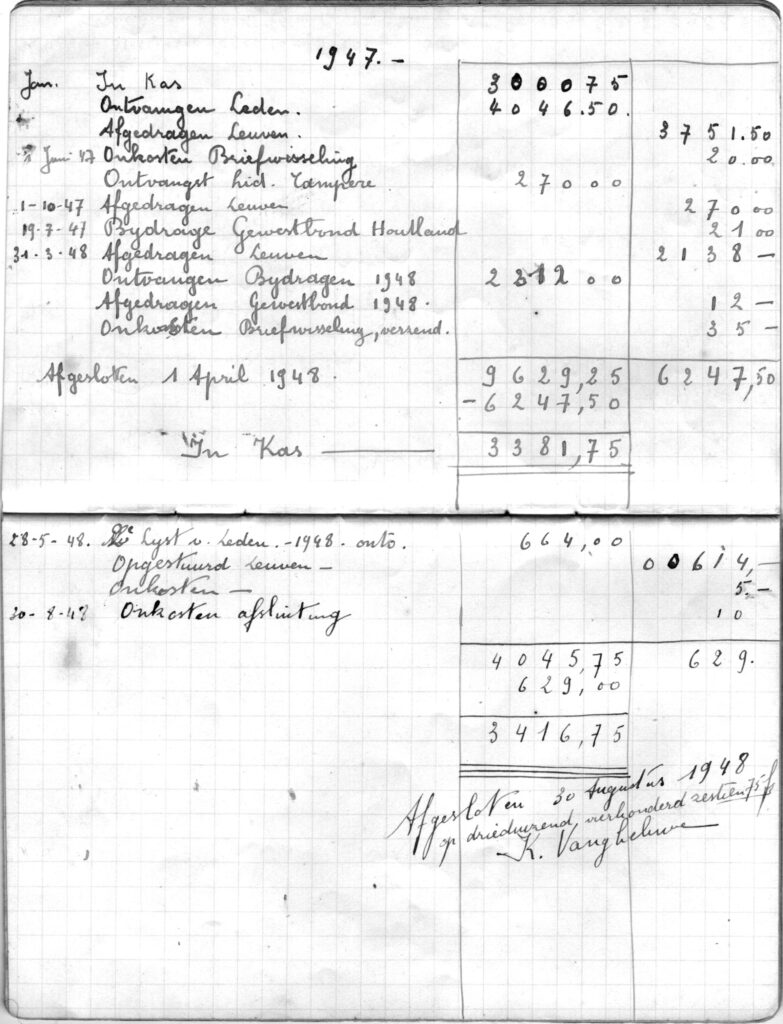 1947.-
Jan. In Kas 3 0 0 0 7 5
Ontvangen Leden. 4 0 4 6.50.
Afgedragen Leuven. 3 7 5 1.50
Juni 47 Onkosten Briefwisseling 2 0.00
Ontvangst hid. Tampere 2 7 0 0 0
1-10-47 Afgedragen Leuven 2 7 0 00
19-7-47 Bydrage Gewestbond Houtland 2 1 00
31-3-48 Afgedragen Leuven 2 1 3 8 -
Ontvangen Bydragen 1948 2 3 1 2 0 0
Afgedragen Gewestbond 1948. 1 2 -
Onkosten Briefwisseling, verzend. 3 5 -
Afgesloten 1 April 1948. 9 6 2 9,25 6 2 4 7,50
- 6 2 4 7,50
In Kas — 3 3 8 1,75
28-5-48. Lyst v. Leden. -1948. ontv. 6 6 4,00
Opgestuurd Leuven - 0 0 6 1 4,-
Onkosten - 5.-
30-8-48 Onkosten afsluiting 1 0
4 0 4 5,75 6 2 9.
6 2 9,00
3 4 1 6,75
Afgesloten 30 Augustus 1948
op drieduizend, vierhonderd zestien 75 f
K. Vangheluwe